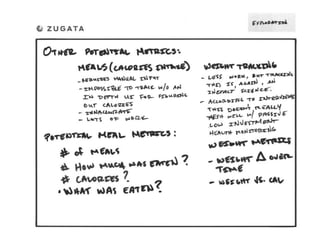 EXPLORATION
ZUGATA
OTHER POTENTIAL METRICS:
MEALS (CALORIES INTAKE)
- REQUIRES MANUAL INPUT
- IMPOSSIBLE TO TRACK W/O AN
IN DEPTH UI FOR FIGURING
OUT CALORIES
- INNACURATE
- LOTS OF WORK
POTENTIAL MEAL METRICS:
# OF MEALS
# HOW MUCH WAS EATEN?
# CALORIES?
• WHAT WAS EATEN?
WEIGHT TRACKING
- LESS WORK, BUT TRACKING
THIS IS, AGAIN, AN
INEXACT SCIENCE.
- ACCORDING TO INTERVIEWS
THIS DOESN'T REALLY
MESH WELL W/ PASSIVE
LOW INVESTMENT
HEALTH MONITORING
WEIGHT METRICS
- WEIGHT Δ OVER
TIME
- WEIGHT VS. CAL